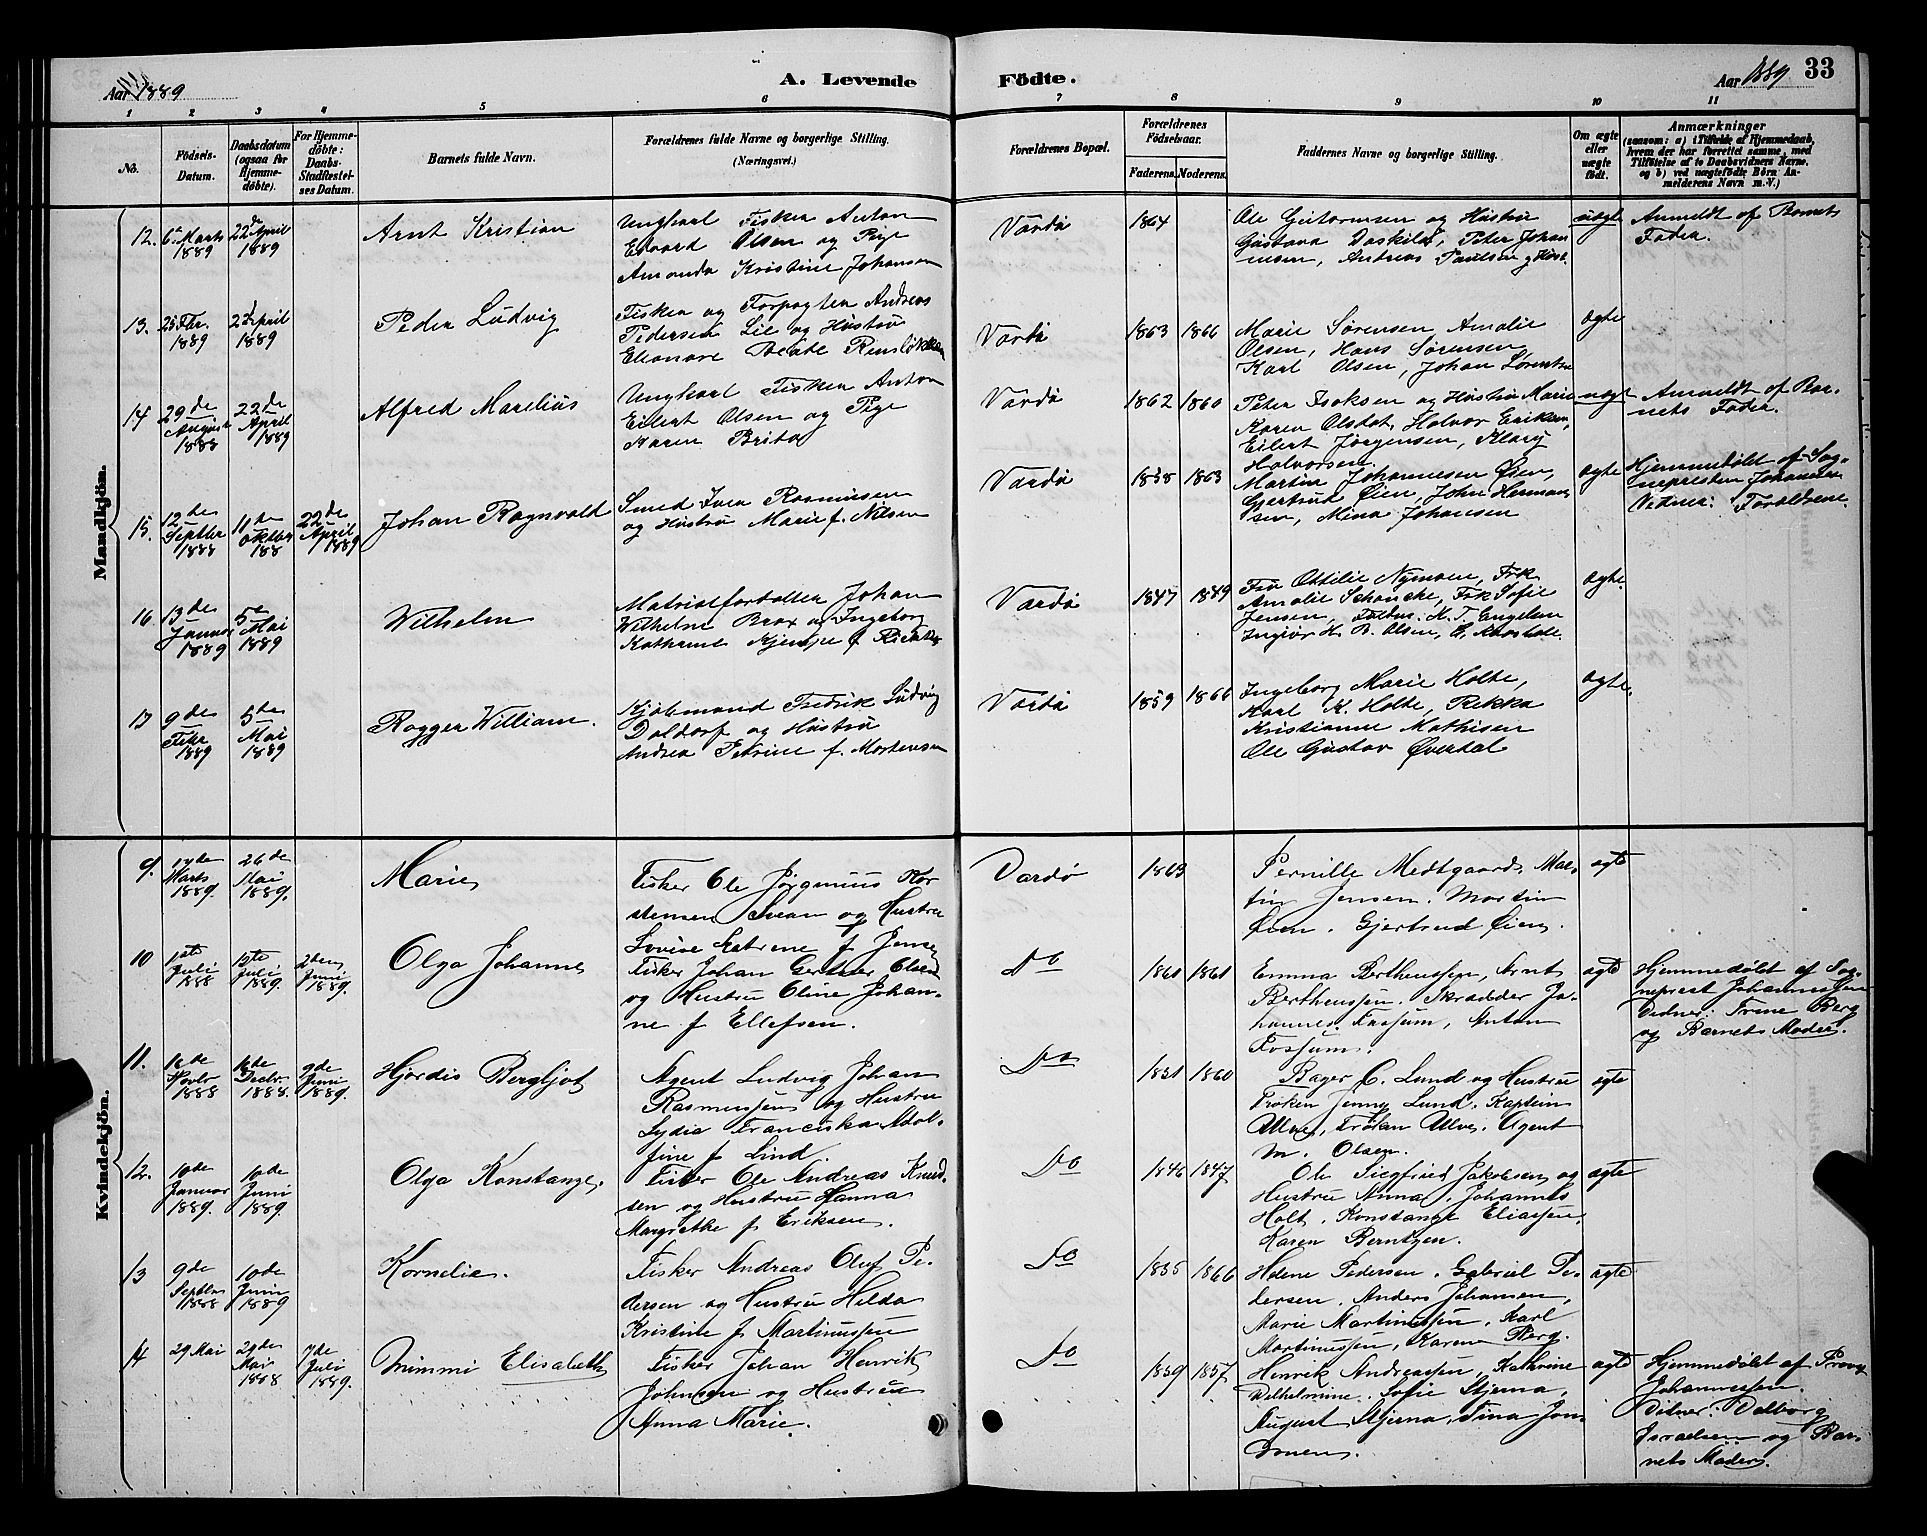 Aar 1889
A. Levende
Födte.
Aar 1889
33
1 2 3 4 5 6 7 8 9 10 11
No.
Födsels-
Datum.
Daabsdatum
(ogsaa for
Hjemme-
døbte).
For Hjemme-
døbte:
Daabs-
Stadfæstel-
ses Datum.
Barnets fulde Navn.
Forældrenes fulde Navne og borgerlige Stilling.
(Næringsvei.)
Forældrenes Bopæl.
Forældrenes
Födselsaar.
Faderens. Moderens.
Faddernes Navne og borgerlige Stilling.
Om ægte
eller
uægte
født.
Anmærkninger
(saasom: a) i Tilfælde af Hjemmedaab,
hvem der har forrettet samme, med
Tilföielse af to Daabsvidners Navne,
og b) ved uægtefødte Börn An-
melderens Navn m. V.)
Mandkjön.
12. 6te Marts
1889
22de April
1889
Arnt Kristian
Ungkarl Fisker Anton
Edvard Olsen og Pige
Amanda Kristine Johansen
Vardø
1864
Ole Guttormsen og Hustru
Gustava Daskild, Peter Johan
nesen, Andreas Paulsen og Hust.
uægte
Anmeldt af Barnets
Fader.
13. 25 Fbr.
1889
22 April
1889
Peder Ludvig
Fisker og Forpagter Andreas
Pedersen Lie og Hustru
Eleonore Beate Rensløkken
Vardø
1863 1866
Marie Sørensen, Amalie
Olsen, Hans Sørensen
Karl Olsen, Johan Sørensen
ægte
14 29de
August
1888
22de
April
1889
Alfred Marelius
Ungkarl Fisker Anton
Eilert Olsen og Pige
Karen Brita
Vardø
1862 1860
Peter Isaksen og Hustru Marie
Karen Olsdat, Halvor Eriksen,
Eilert Jørgensen, Klary
Halvorsen.
uægte
Anmeldt af Bar-
nets Fader.
15. 12des
Septber
1888
11de
Oktober
188
22de
April
1889
Johan Ragnvald
Smed Iver Rasmussen
og Hustru Marie f. Nilsen
Vardø
1858 1863
Martin Johannesen Øien,
Gjertrud Øien, John Herman
sen, Mina Johansen
ægte
Hjemmedøbt af Sog-
nepresten Johannessen
Vidner: Forældrene.
16. 13de
Januar
1889
5te
Mai
1889
Wilhelm
Materialforvalter Johan
Wilhelm Brox og Ingeborg
Kathrine f.
Vardø
1847 1849
Fru Ottilie Nyman, Frk
Amalie Schanche, Frk Sofie
Jensen, K. T. Engelsen
Ingiør K. B. Olsen,
ægte.
17 9de
Febr
1889
5de
Mai
1889
Ragger William.
Kjøbmand Fredrik Ludvig
Doldorf og Hustru
Andrea Petrine f. Mortensen
Vardø
1859 1866
Ingeborg Marie Holte,
Karl K. Holte, Rikka
Kristianne Mathisen
Ole Gustav Øverdal
ægte.
Kvindekjön.
9. 17de
Marts
1889.
26de
Mai
1889.
Marie
Fisker Ole Jørginius Tor
stensen Svean og Hustru
Lovise Katrine f Jensen
Vardø
1863
Pernille Medtgaard, Mar-
tin Jensen. Martin
Øien. Gjertrud Øien.
ægte
10 1ste
Juli
1888
12te
Juli
1889.
2den
Juni
1889.
Olga Johanne
Fisker Johan Gertner Olsen
og Hustru Oline Johan-
ne f Ellefsen.
Do
1861 1861
Emma Bertheussen, Arnt
Bertheussen. Skrædder Jo-
hannes Fossum, Anton
Fossum.
ægte
Hjemmedøbt af Sog-
neprest Johannessen
Vidner: Trine Berg
og Barnets Moder.
11. 16de
Novbr
1888
16de
Decbr.
1888.
9de
Juni
1889.
Hjørdis Bergljot
Agent Ludvig Johan
Rasmussen og Hustru
Lydia Franciska Adol-
fine f Lind.
Do
1851 1860
Bager C. Lund og Hustru
Frøken Jenny Lund. Kaptein
Ulve, Frøken Ulve. Agent
M. Olsen.
ægte
12. 10de
Januar
1889.
10de
Juni
1889.
Olga Konstanze.
Fisker Ole Andreas Knud-
sen og Hustru Hanna
Margrethe f Eriksen.
Do
1846 1847
Ole Siegfried Jakobsen og
Hustru Anna. Johannes
Holt. Konstanze Eliassen.
Karen Berntzen.
ægte
13 9de
Septbr
1888
10de
Juni
1889
Kornelia.
Fisker Andreas Oluf Pe-
dersen og Hustru Hilda
Kristine f Martinussen
Do
1855 1866
Helene Pedersen. Gabriel Pe-
dersen. Anders Johansen,
Marie Martinussen, Karl
Martinussen, Karen Berg.
ægte
14 29 Mai
29de
Mai
1888
7de
Juli
1889.
Mimmi Elisabeth
Fisker Johan Henrik
Johnsen og Hustru
Anna Marie.
Do
1859 1857
Henrik Andreassen, Kathrine
Wilhelmine. Sofie Stjerna,
August Stjerna, Tina Jon
ægte
Hjemmedøbt af Provst
Johannessen.
Vidner: Valborg
Israelsen og Bar-
nets Moder.